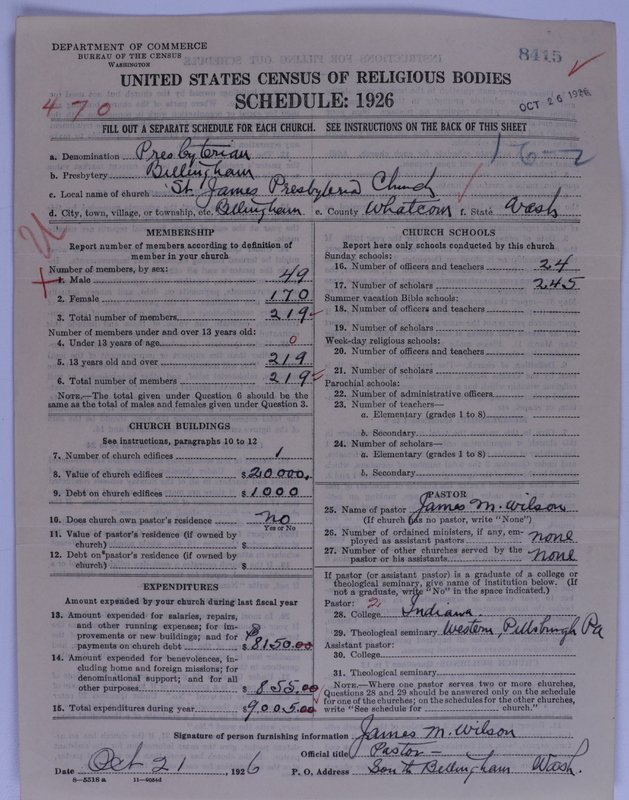 DEPARTMENT OF COMMERCE
BUREAU OF THE CENSUS
WASHINGTON
8415
UNITED STATES CENSUS OF RELIGIOUS BODIES
SCHEDULE: 1926
470
OCT 26 1926
FILL OUT A SEPARATE SCHEDULE FOR EACH CHURCH. SEE INSTRUCTIONS ON THE BACK OF THIS SHEET
16-2
a. Denomination Presbyterian
b. Presbytery Bellingham
c. Local name of church St. James Presbyteria Church
d. City, town, village, or township, etc. Bellingham e. County Whatcom f. State Wash
MEMBERSHIP
Report number of members according to definition of
member in your church
Number of members, by sex:
1. Male 49
2. Female 170
3. Total number of members 219
Number of members under and over 13 years old:
4. Under 13 years of age 0
5. 13 years old and over 219
6. Total number of members 219
NOTE.—The total given under Question 6 should be the
same as the total of males and females given under Question 3.
CHURCH BUILDINGS
See instructions, paragraphs 10 to 12
7. Number of church edifices 1
8. Value of church edifices $20000.
9. Debt on church edifices $1000
10. Does church own pastor's residence No
Yes or No
11. Value of pastor's residence (if owned by
church) $
12. Debt on pastor's residence (if owned by
church) $
EXPENDITURES
Amount expended by your church during last fiscal year
13. Amount expended for salaries, repairs,
and other running expenses; for im-
provements or new buildings; and for
payments on church debt $8150.00
14. Amount expended for benevolences, in-
cluding home and foreign missions; for
denominational support; and for all
other purposes $855.00
15. Total expenditures during year $9005.00
CHURCH SCHOOLS
Report here only schools conducted by this church
Sunday schools:
16. Number of officers and teachers 24
17. Number of scholars 245
Summer vacation Bible schools:
18. Number of officers and teachers
19. Number of scholars
Week-day religious schools:
20. Number of officers and teachers
21. Number of scholars
Parochial schools:
22. Number of administrative officers
23. Number of teachers—
a. Elementary (grades 1 to 8)
b. Secondary
24. Number of scholars—
a. Elementary (grades 1 to 8)
b. Secondary
PASTOR
25. Name of pastor James M. Wilson
(If church has no pastor, write "None")
26. Number of ordained ministers, if any, em-
ployed as assistant pastors none
27. Number of other churches served by the
pastor or his assistants none
If pastor (or assistant pastor) is a graduate of a college or
theological seminary, give name of institution below. (If
not a graduate, write "No" in the space indicated.)
Pastor: 2
28. College Indiana.
29. Theological seminary Western, Pittsburgh Pa
Assistant pastor:
30. College
31. Theological seminary
NOTE.—Where one pastor serves two or more churches,
Questions 28 and 29 should be answered only on the schedule
for one of the churches; on the schedules for the other churches,
write "See schedule for church."
Signature of person furnishing information James M. Wilson
Official title Pastor—
Date Oct 21, 1926 P. O. Address South Bellingham Wash.
8-5518 a